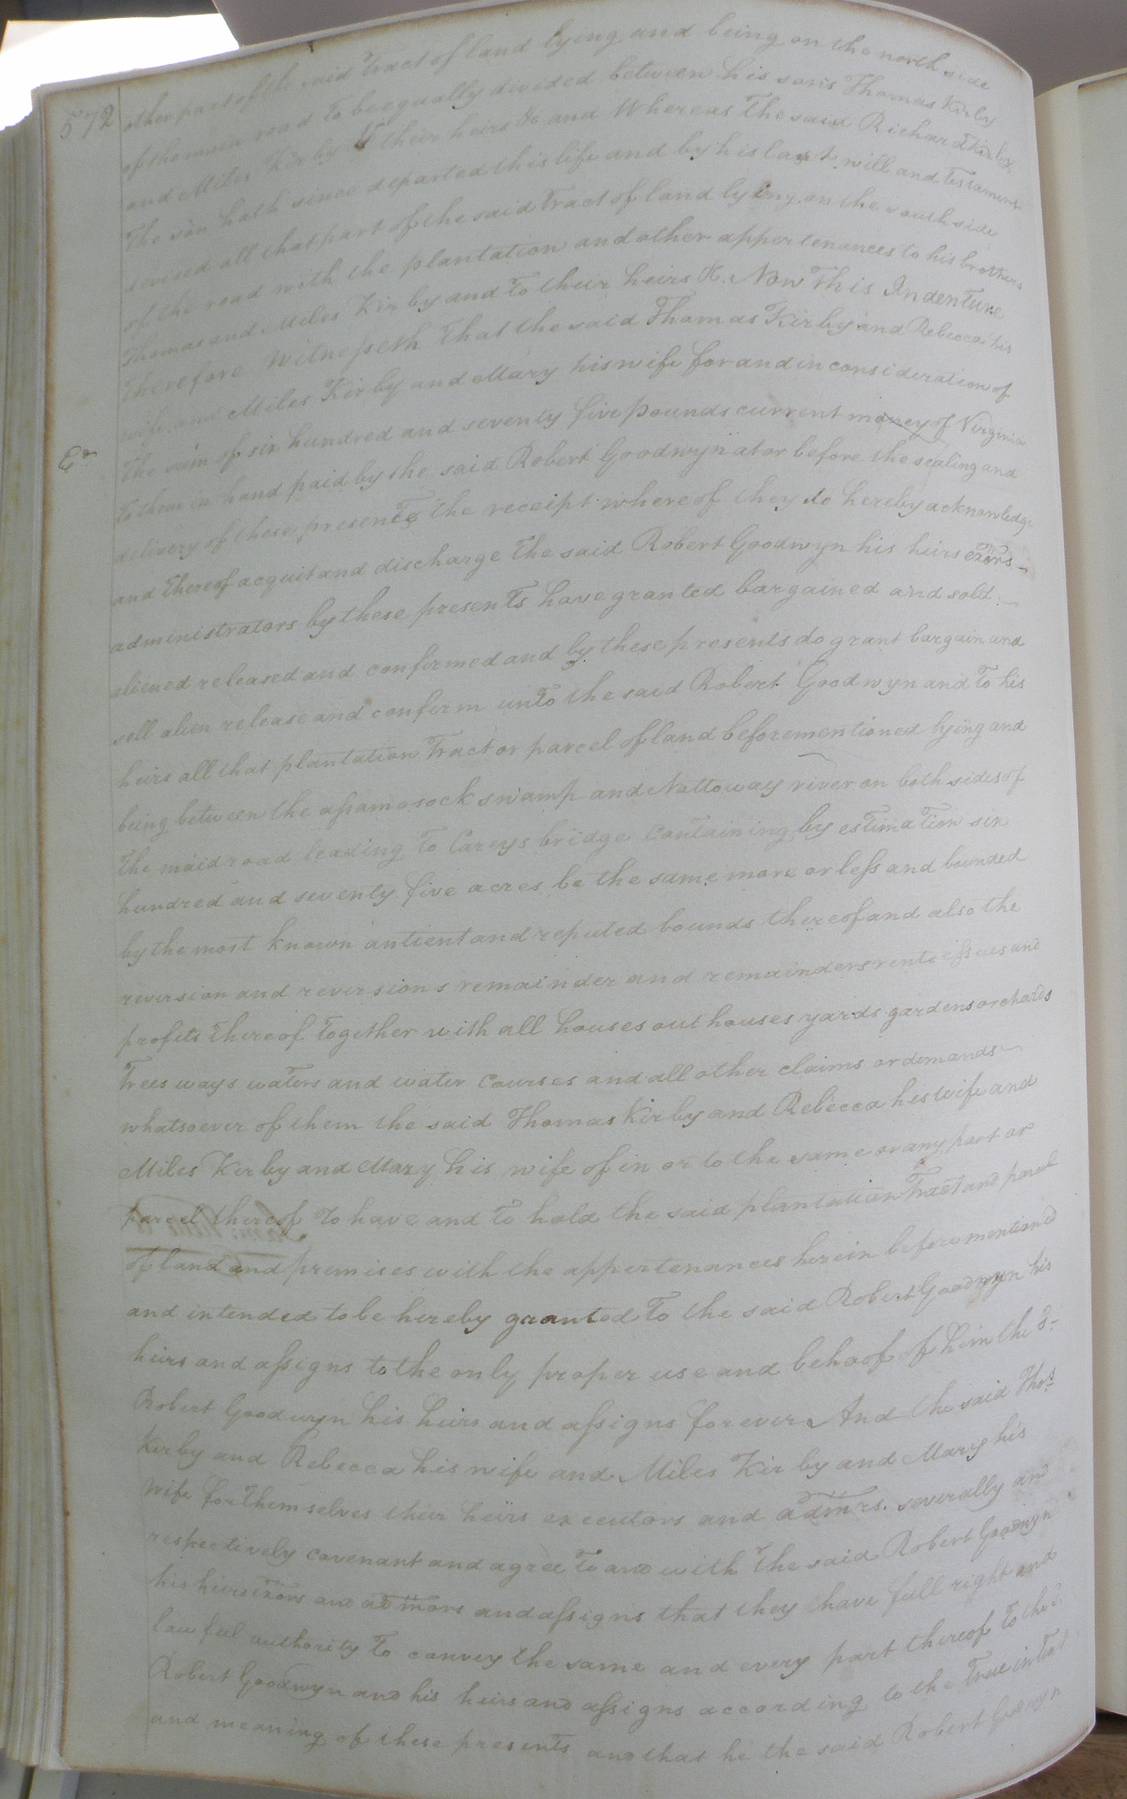 572
other part of the said tract of land lying and being on the north side
of the main road to be equally divided between his sons Thomas Kirby
and Miles Kirby & their heirs &c and Whereas the said Richard Kirby
the son hath since departed this life and by his last will and testament
devised all that part of the said tract of land lying on the south side
of the road with the plantation and other appertenances to his brothers
Thomas and Miles Kirby and to their heirs &c. Now This Indenture
therefore Witnesseth that the said Thomas Kirby and Rebecca his
wife and Miles Kirby and Mary his wife for and in consideration of
the sum of six hundred and seventy five pounds current money of Virginia
to them in hand paid by the said Robert Goodwyn at or before the sealing and
delivery of these presents the receipt whereof they do hereby acknowledge
and thereof acquit and discharge the said Robert Goodwyn his heirs exors
administrators by these presents have granted bargained and sold
aliened released and confirmed and by these presents do grant bargain and
sell alien release and confirm unto the said Robert Goodwyn and to his
heirs all that plantation tract or parcel of land beforementioned lying and
being between the assamosock swamp and Nottoway river on both sides of
the maid road leading to Careys bridge containing by estimation six
hundred and seventy five acres be the same more or less and bounded
by the most known antient and reputed bounds thereof and also the
reversion and reversions remainder and remainders rents issues and
profits thereof together with all houses out houses yards gardens orchards
trees ways waters and water courses and all other claims or demands
whatsoever of them the said Thomas Kirby and Rebecca his wife and
Miles Kirby and Mary his wife of in or to the same or any part or
parcel thereof To have and to hold the said plantation tract and parcel
of land and premises with the appertenances herein beforementioned
and intended to be hereby granted to the said Robert Goodwyn his
heirs and assigns to the only proper use and behoof of him the sd
Robert Goodwyn his heirs and assigns forever And the said Thos
Kirby and Rebecca his wife and Miles Kirby and Mary his
wife for themselves their heirs executors and admrs. severally and
respectively covenant and agree to and with the said Robert Goodwyn
his heirs exors and admors and assigns that they have full right and
lawful authority to convey the same and every part thereof to the sd
Robert Goodwyn and his heirs and assigns according to the true intent
and meaning of these presents and that he the said Robert Goodwyn